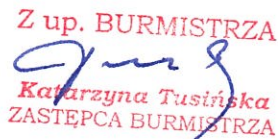 Z up. BURMISTRZA
Katarzyna Tusińska
ZASTĘPCA BURMISTRZA